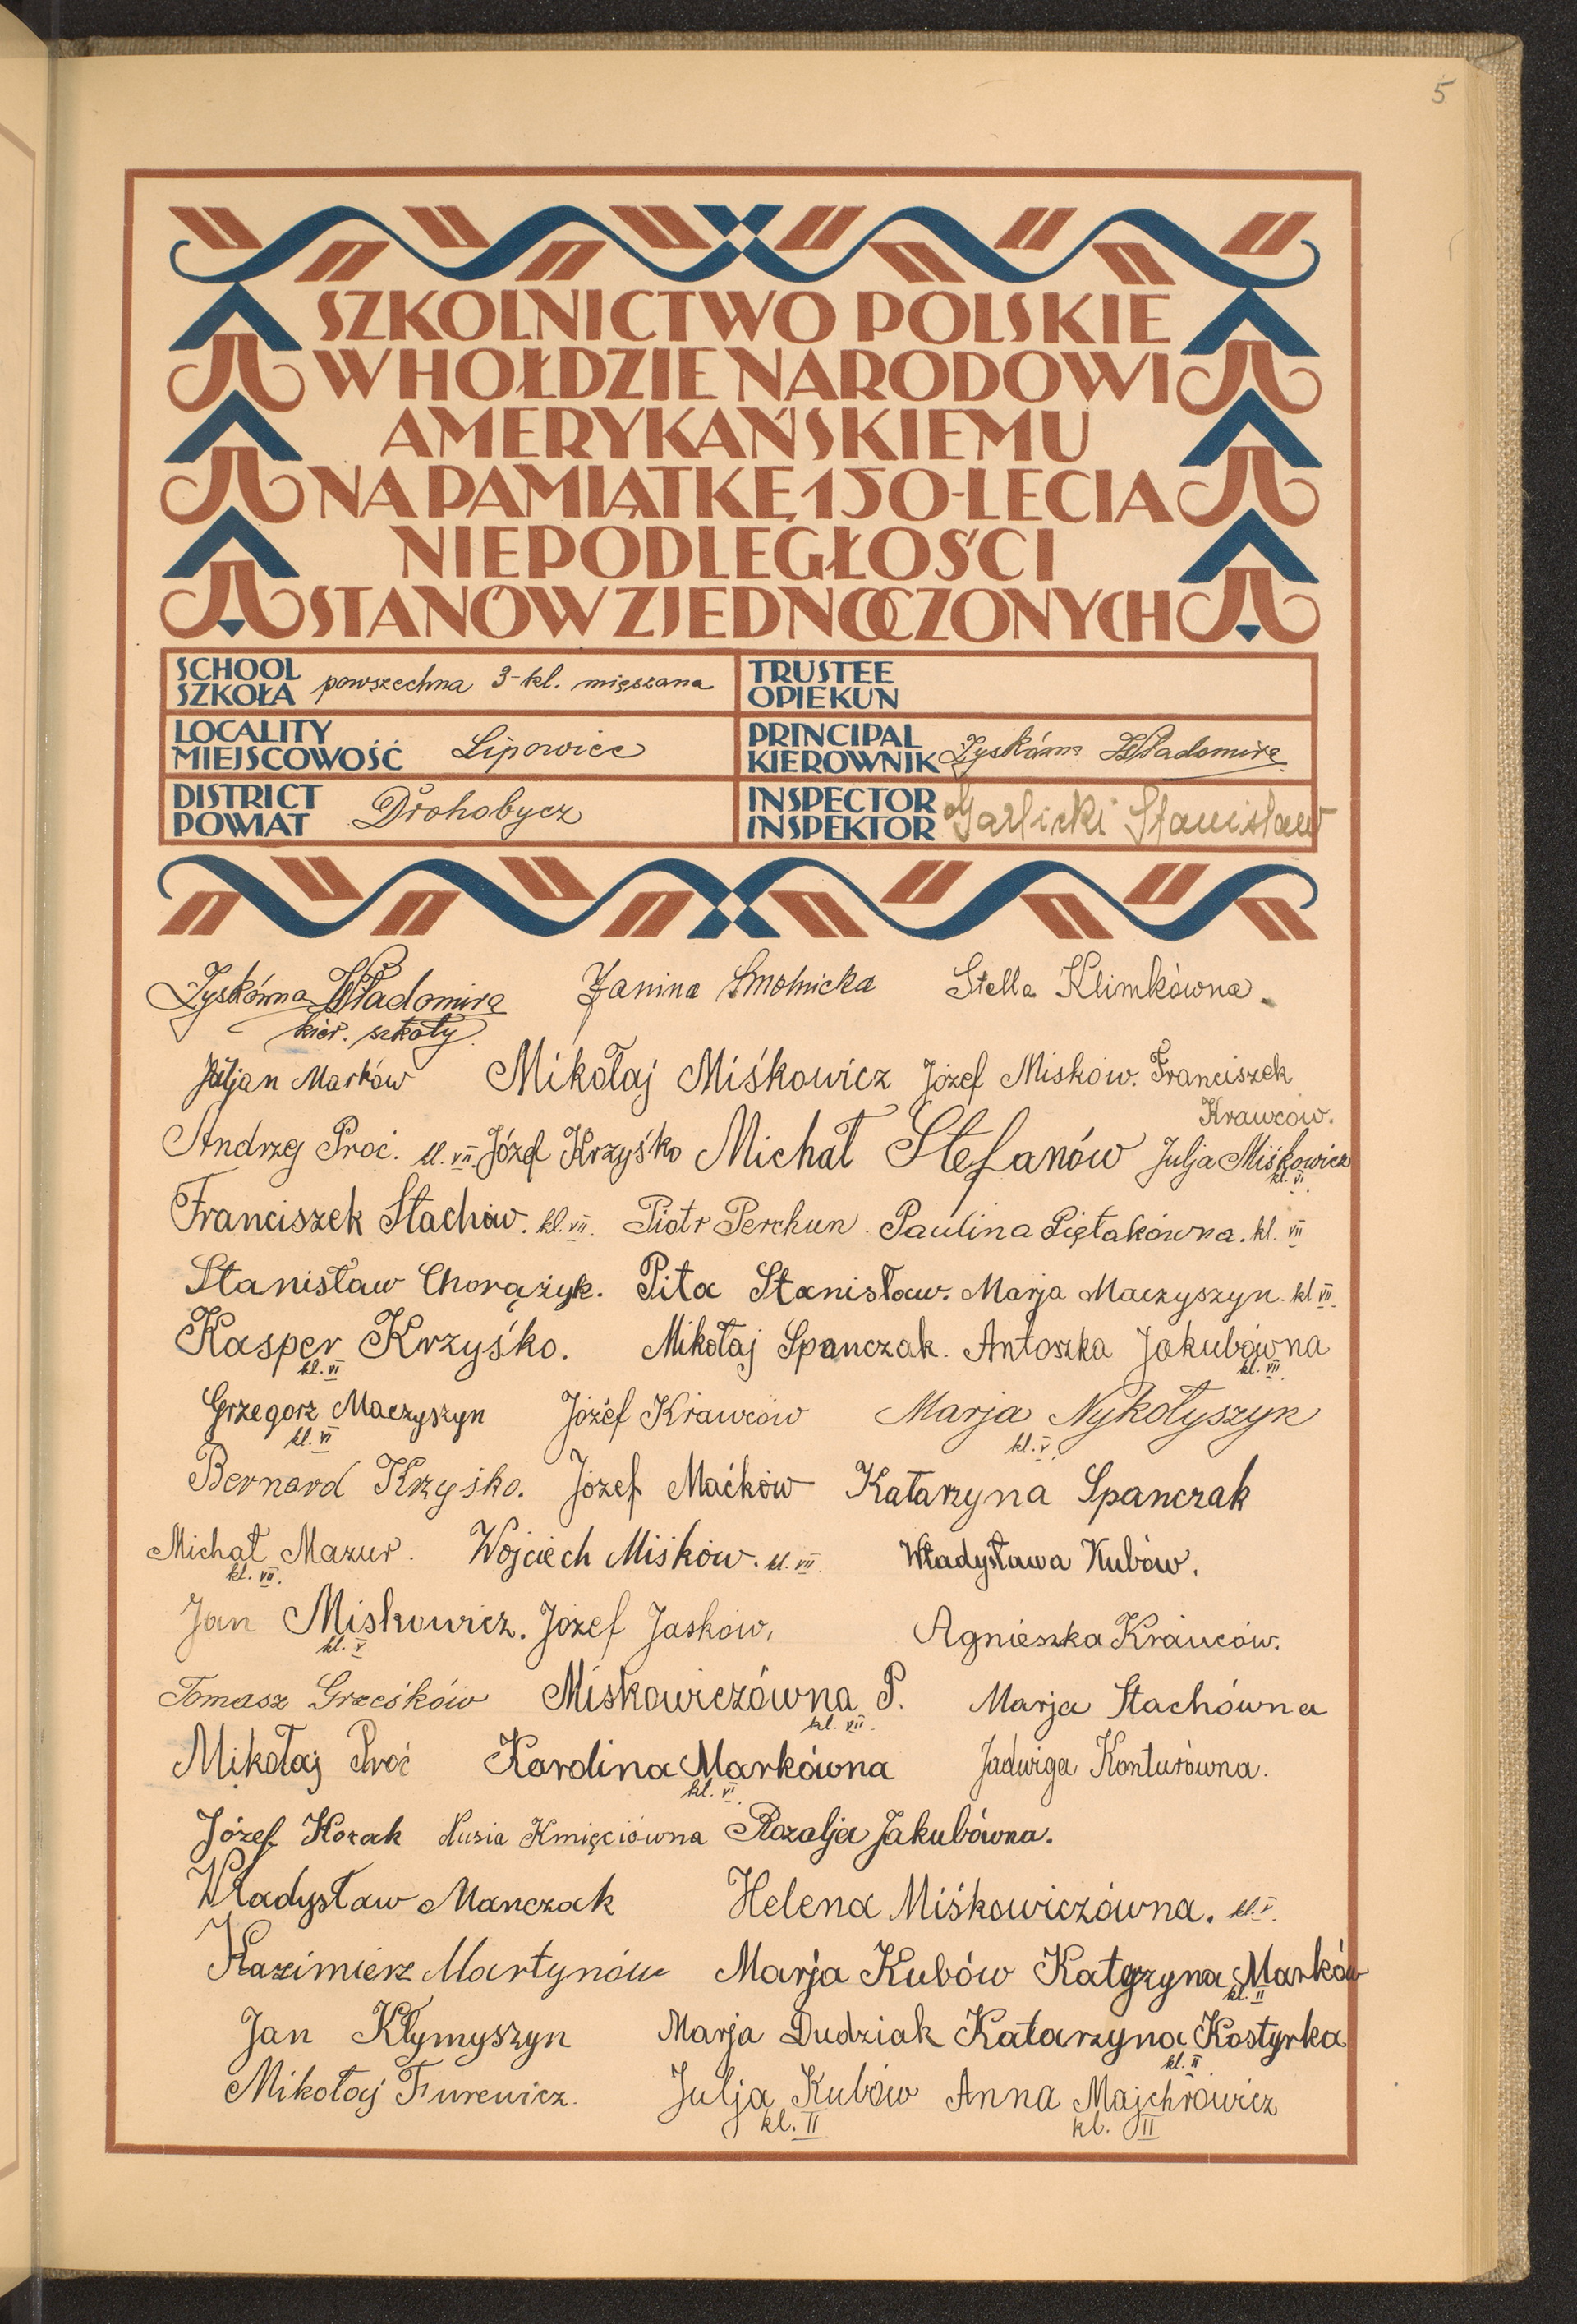 5
SZKOLNICTWO POLSKIE
W HOŁDZIE NARODOWI
AMERYKAŃSKIEMU
NA PAMIĄTKĘ 150-LECIA
NIEPODLEGŁOŚCI
STANÓW ZJEDNOCZONYCH
SCHOOL
SZKOŁA powszechna 3-kl. mięszana
TRUSTEE
OPIEKUN
LOCALITY
MIEJSCOWOŚĆ Lipowiec
PRINCIPAL
KIEROWNIK Zyskówna Władomira
DISTRICT
POWIAT Drohobycz
INSPECTOR
INSPEKTOR Garlicki Stanisław
Zyskówna Władomira Janina Smolnicka Stella Klimkówna.
kier. szkoły
Juljan Marków Mikołaj Miśkowicz Józef Miśków. Franciszek
Krawców.
Andrzej Proć. kl. VII. Józef Krzyśko Michał Stefanów Julja Miśkowicz
kl. VI
Franciszek Stachów. kl. VII. Piotr Perchun. Paulina Piętakówna. kl. VII
Stanisław Chorążyk. Pita Stanisław. Marja Maczyszyn. kl VII.
Kasper Krzyśko. Mikołaj Spanczak. Antoszka Jakubówna
kl. VI kl. VII.
Grzegorz Maczyszyn Józef Krawców Marja Nykołyszyn
kl. VI kl. V.
Bernard Krzyśko. Józef Maćków Katarzyna Spanczak
Michał Mazur. Wojciech Miśków. kl. VII. Władysława Kubów.
kl. VII.
Jan Miskowicz. Józef Jaśków, Agnieszka Krawców.
kl. V
Tomasz Grześków Miśkowiczówna P. Marja Stachówna
kl. VII.
Mikołaj Proć Karolina Markówna Jadwiga Konturówna.
kl. VI.
Józef Kozak Nusia Kmięciówna Rozalja Jakubówna.
Władysław Manczak Helena Miśkowiczówna. kl. V.
Kazimierz Martynów Marja Kubów Katarzyna Marków
kl. II
Jan Kłymyszyn Marja Dudziak Katarzyna Kostyrka
kl. II
Mikołaj Furewicz. Julja Kubów Anna Majchrowicz
kl. II kl. II